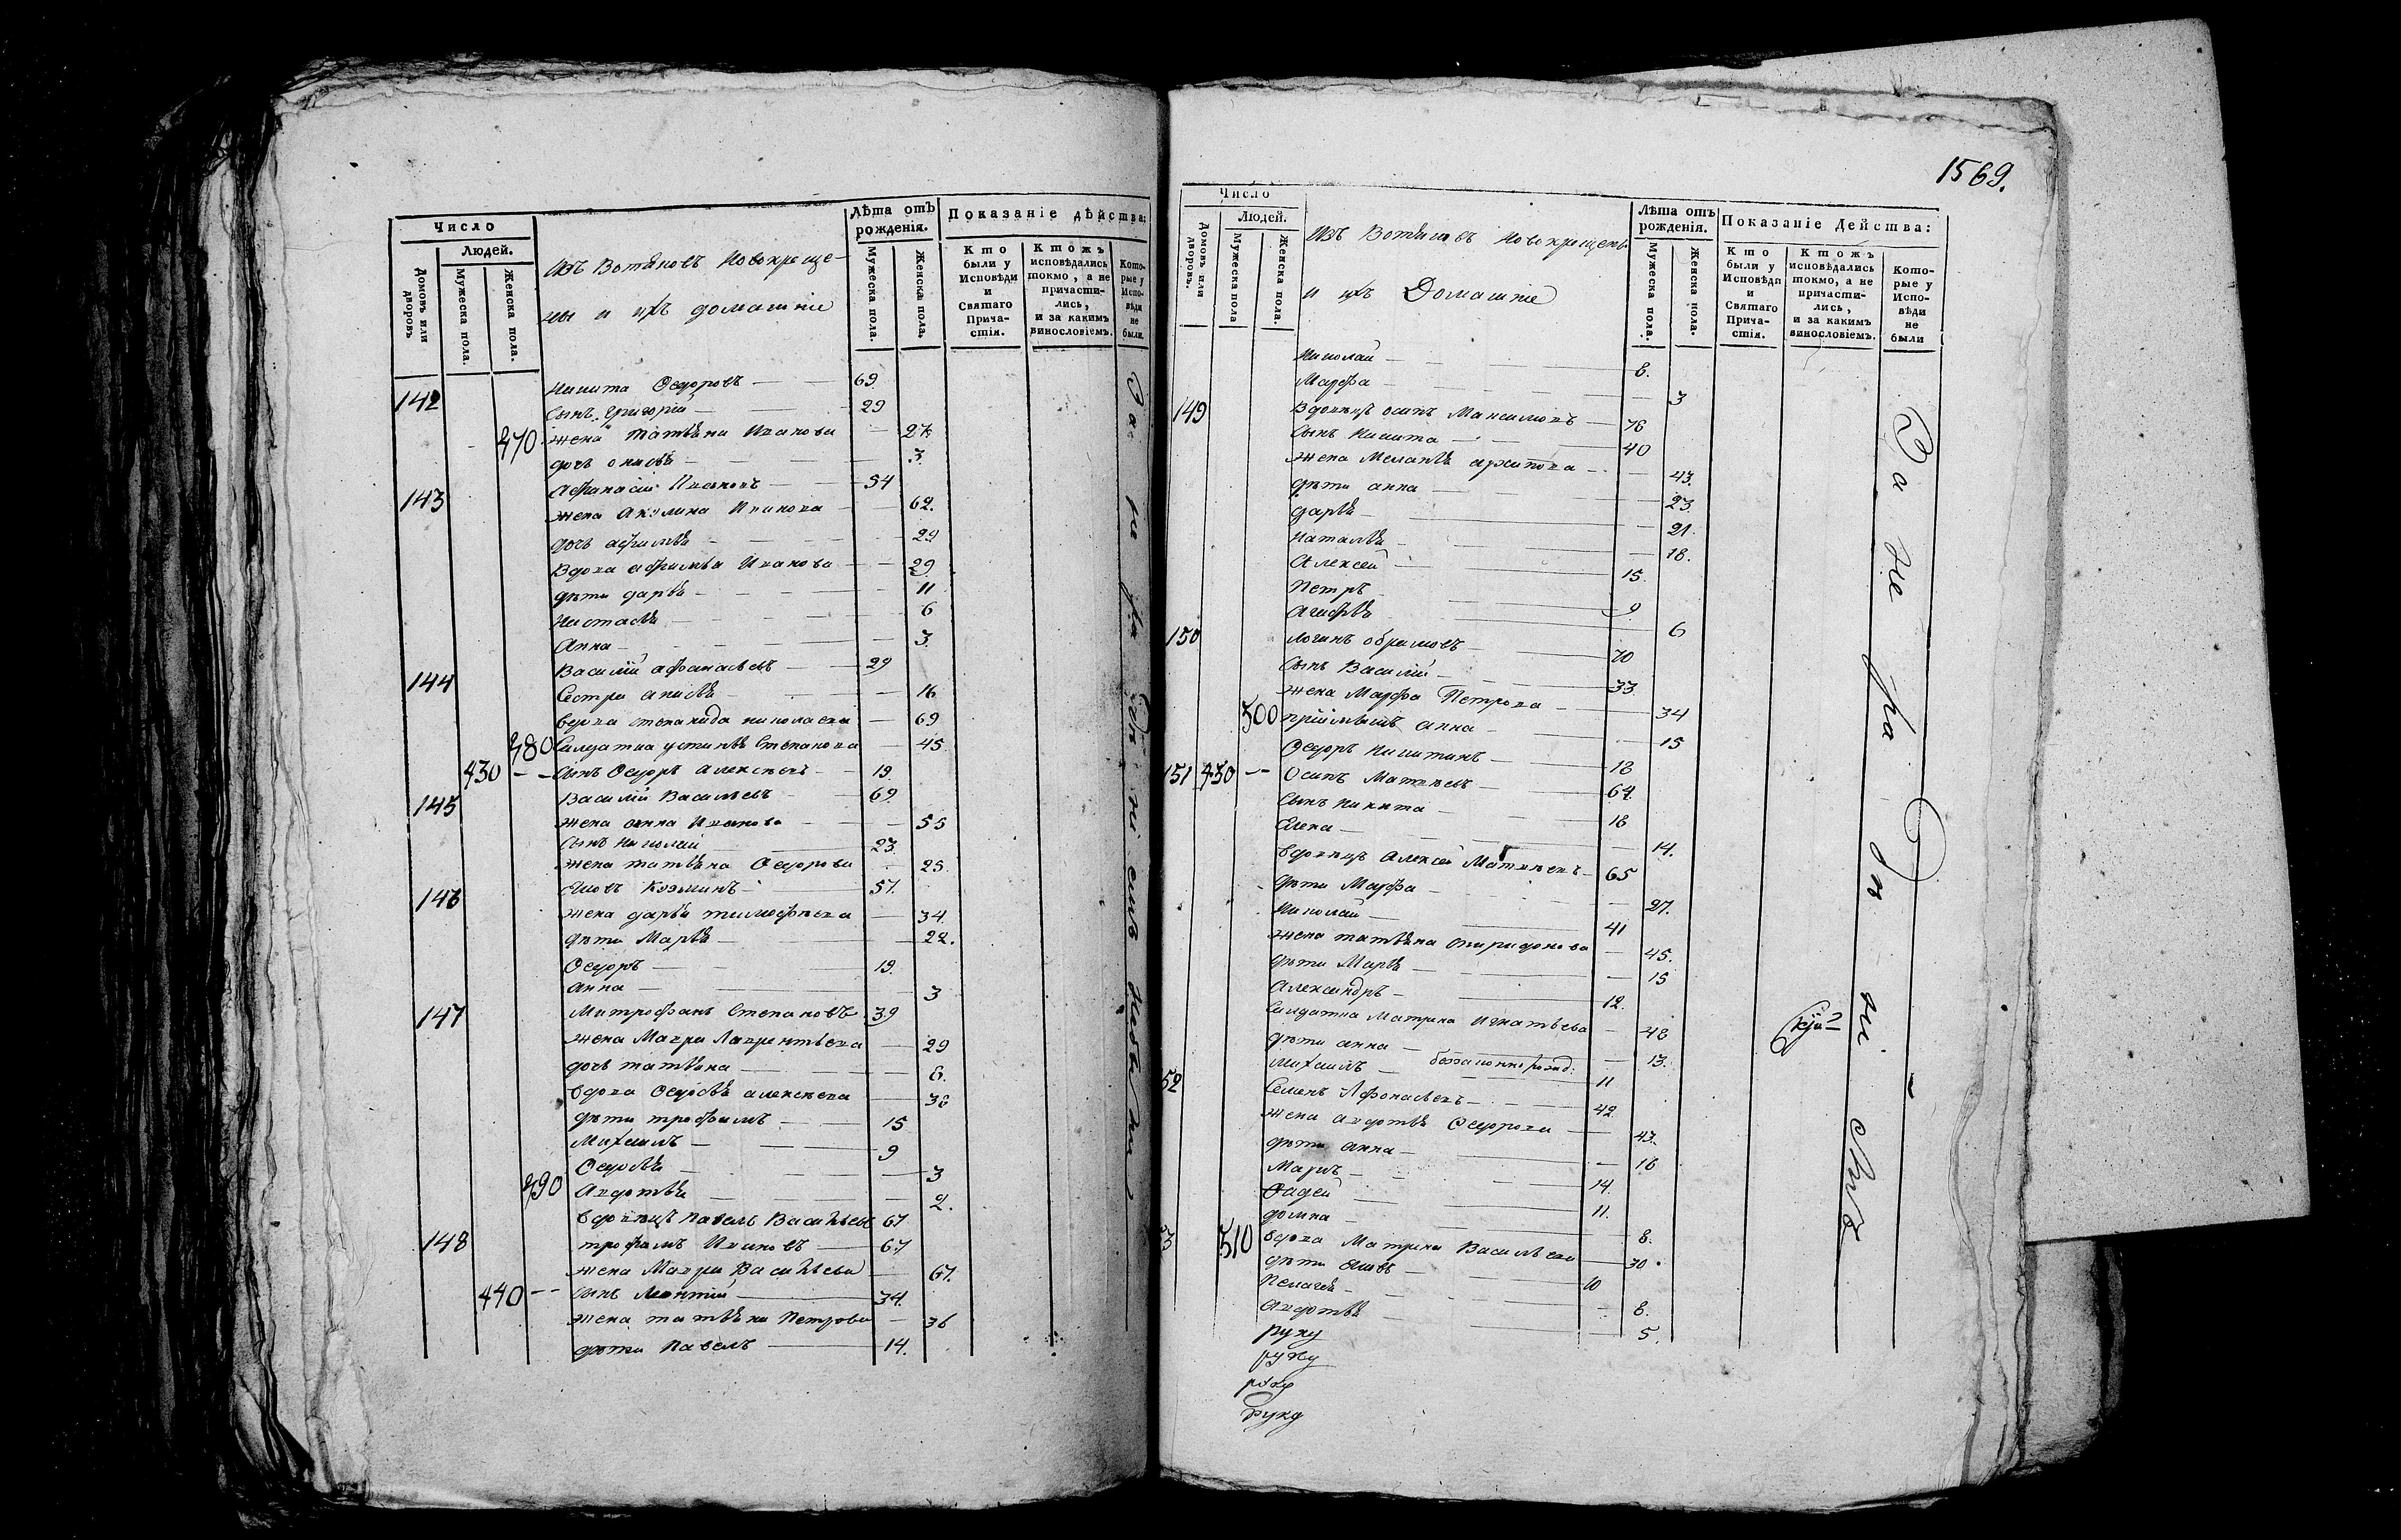 Число
Людей.
Домовъ или дворовъ
Мужеска пола.
Женска пола.
Изъ Вотяковъ Новокреще-
ны и ихъ домашніе
Лѣта отъ рожденія.
Мужеска пола.
Женска пола.
Показаніе дѣйства:
Кто были у Исповѣди и Святаго Прича-стія.
Ктожъ исповѣдались токмо, а не причасти-лись, и за какимъ винословіемъ.
Кото-рые у Испо-вѣди не были.
142 Никита Ѳедоровъ 69
Сынъ Григорій 29
470 жена Татьяна Иванова 27
дочь 3.
143 Афанасій Ивановъ 54
жена Акулина Иванова 62.
дочь 29
Вдова Иванова 29
дѣти дарья 11
Настасья 6
Анна 3.
144 Василій Афанасьевъ 29
Сестра анисья 16
вдова степанида николаева 69
480 Салдатка устинья Степанова 45.
430 Сынъ Ѳедоръ Алексѣевъ 19.
145 Василій Васильевъ 69.
жена анна Иванова 55
Сынъ Николай 23.
жена татьяна Ѳедорова 25
146 Яковъ Козминъ 57.
жена дарья тимофѣева 34.
дѣти Марья 22.
Ѳедоръ 19.
анна 3
147 Митрофанъ Степановъ 39
жена Мавра Лаврентьева 29
дочь татьяна 8.
вдова Ѳедосья алексѣева 38
дѣти трофимъ 15
Михаилъ 9
Ѳедосья 3
490 Авдотья 2.
вдовецъ Павелъ Васильевъ 67
148 трофимъ Ивановъ 67
жена Мавра Васильева 67.
440 Сынъ Леонтій 34.
жена татьяна Петрова 36
дѣти Павелъ 14.
1569.
Число
Людей.
Домовъ или дворовъ.
Мужеска пола
Женска пола.
Изъ Вотяковъ Новокрещены
и ихъ Домашніе
Лѣта отъ рожденія.
Мужеска пола.
Женска пола.
Показаніе Дейстѣва:
Кто были у Исповѣди и Святаго Прича-стія.
Ктожъ исповѣдались токмо, а не причасти-лись, и за какимъ винословіемъ.
Кото-рые у Испо-вѣди не были
Николай 8.
Марфа 3
149 Вдовецъ осипъ Максимовъ 76
Сынъ Никита 40
жена Меланья архипова 43.
дѣти анна 23.
дарья 21.
наталья 18.
Алексей 15.
Петръ 9.
Агафья 6
150 логинъ 70
Сынъ Василій 33.
жена Марфа Петрова 34
500 пріимышъ анна 15
Ѳедоръ Никитинъ 18
151 450 Осипъ Матвѣевъ 64.
Сынъ никита 18
Елена 14.
вдовецъ Алексей Матвѣевъ 65
дѣти Марфа 27.
Николай 41
жена татьяна спиридонова 45.
дѣти Марья 15
Александръ 12.
Салдатка Матрена Игнатьева 48
дѣти анна 13.
Михаилъ 11
52 Семенъ Афонасьевъ 42
жена авдотья Ѳедорова 43.
дѣти анна 18
Маркъ 14.
Ѳадей 11.
домна 8.
53 510 вдова Матрена Васильева 30.
дѣти Яковъ 10
Пелагея 8.
авдотья 5.
руку
руку
руку
руку